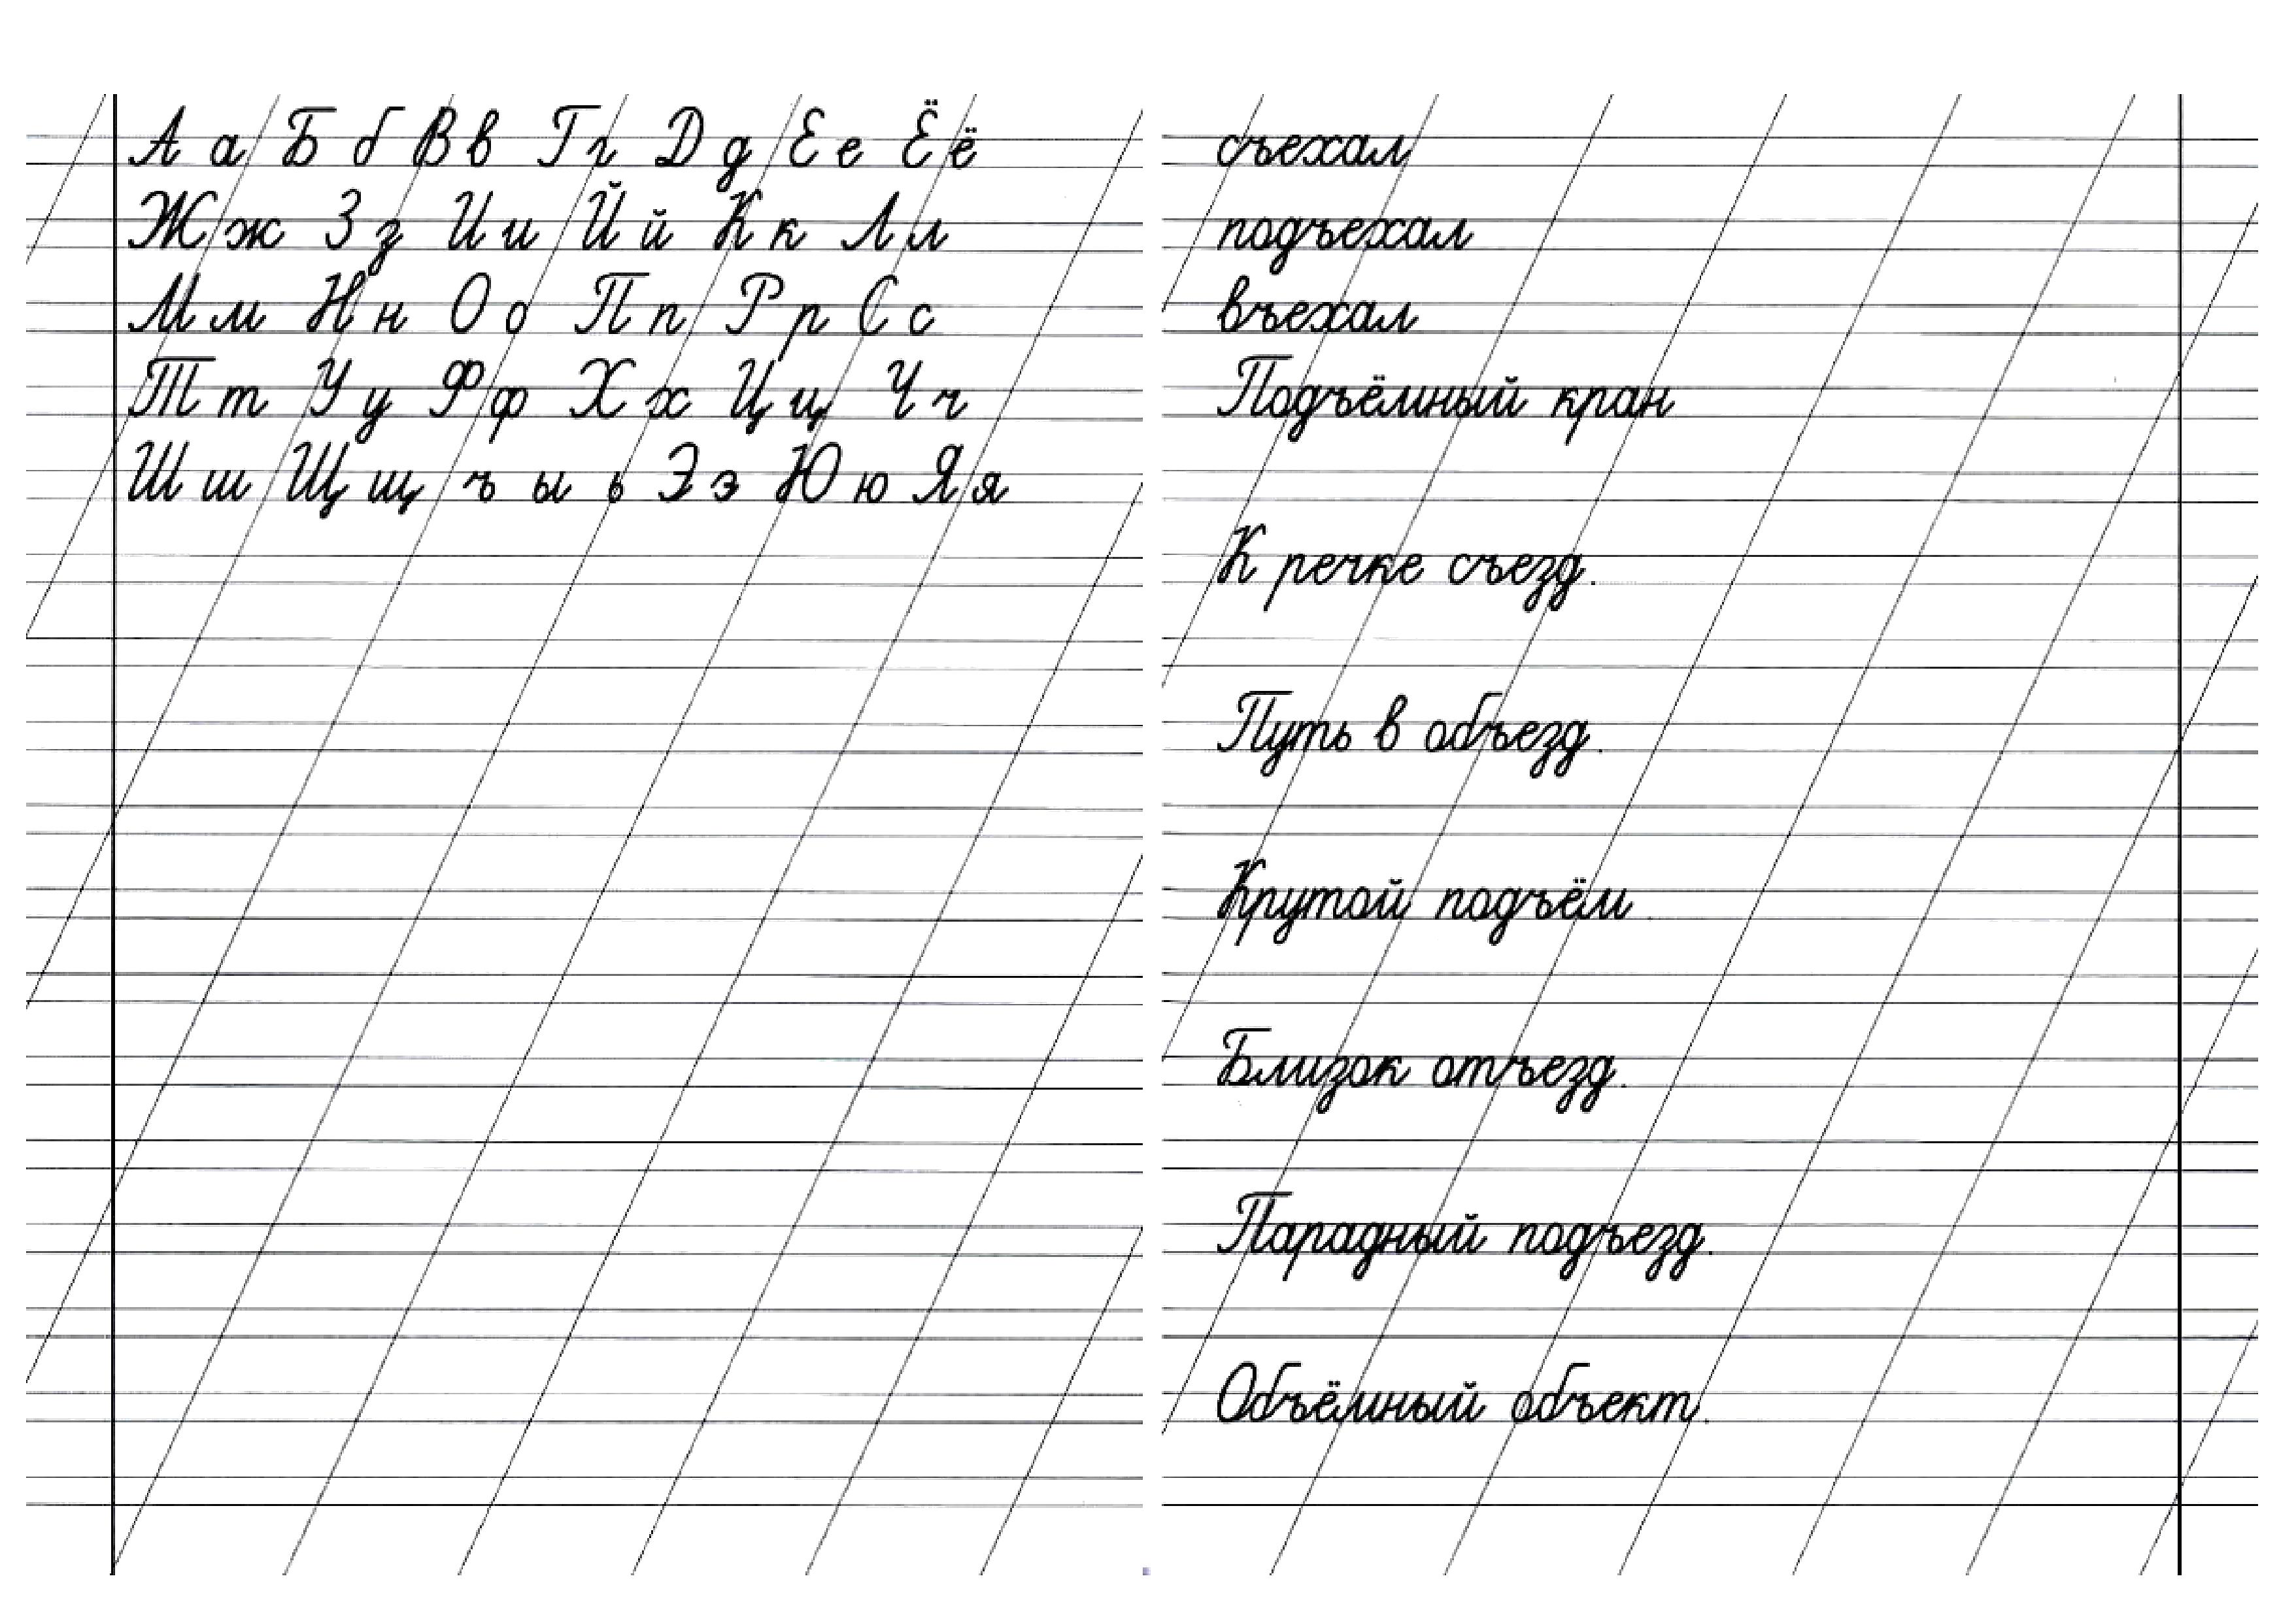 А а Б б В в Г г Д д Е е Ё ё
Ж ж З з И и Й й К к Л л
М м Н н О о П п Р р С с
Т т У у Ф ф Х х Ц ц Ч ч
Ш ш Щ щ ъ ы ь Э э Ю ю Я я
съехал
подъехал
въехал
Подъёмный кран
К речке съезд.
Путь в объезд.
Крутой подъём.
Близок отъезд.
Парадный подъезд.
Объёмный объект.